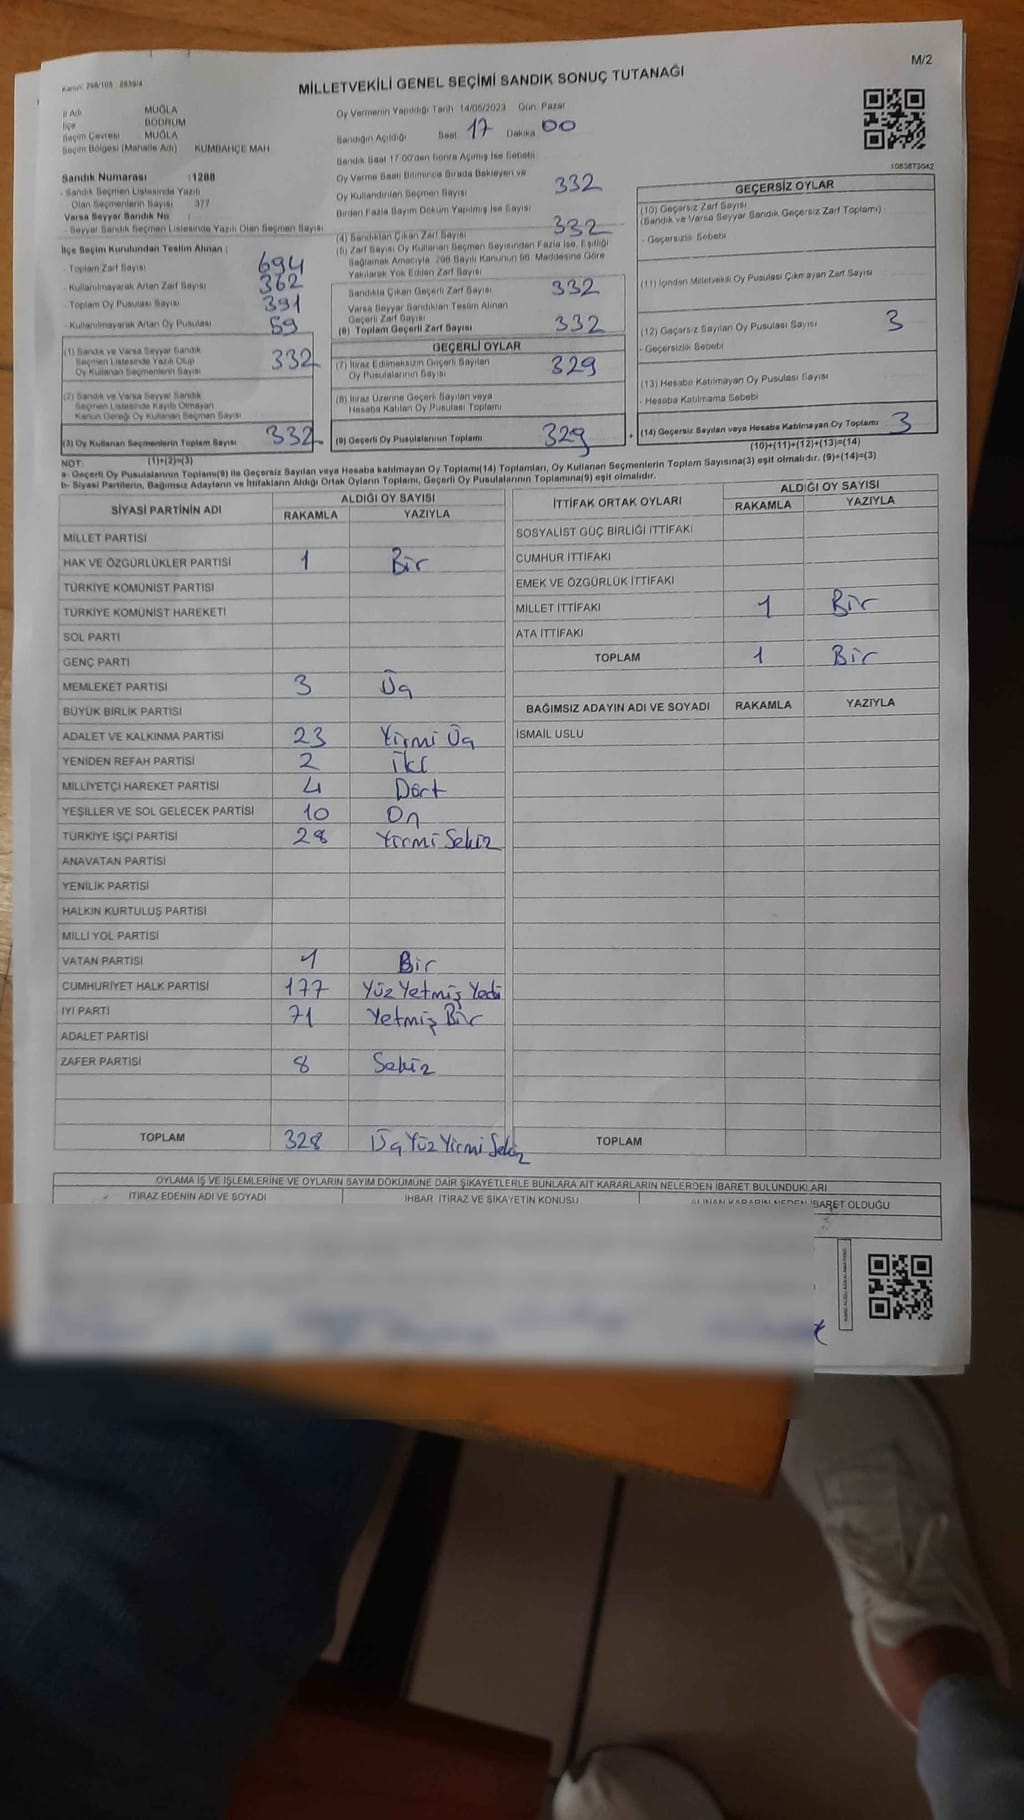 M/2
Kanun: 298/105 - 2839/4
MİLLETVEKİLİ GENEL SEÇİMİ SANDIK SONUÇ TUTANAĞI
İl Adı MUĞLA
İlçe BODRUM
Seçim Çevresi MUĞLA
Seçim Bölgesi (Mahalle Adı) KUMBAHÇE MAH.
Sandık Numarası : 1288
- Sandık Seçmen Listesinde Yazılı
Olan Seçmenlerin Sayısı 377
Varsa Seyyar Sandık No :
- Seyyar Sandık Seçmen Listesinde Yazılı Olan Seçmen Sayısı
İlçe Seçim Kurulundan Teslim Alınan ;
- Toplam Zarf Sayısı 694
- Kullanılmayarak Artan Zarf Sayısı 362
- Toplam Oy Pusulası Sayısı 391
- Kullanılmayarak Artan Oy Pusulası 59
(1) Sandık ve Varsa Seyyar Sandık
Seçmen Listesinde Yazılı Olup
Oy Kullanan Seçmenlerin Sayısı 332
(2) Sandık ve Varsa Seyyar Sandık
Seçmen Listesinde Kayıtlı Olmayan
Kanun Gereği Oy Kullanan Seçmen Sayısı
(3) Oy Kullanan Seçmenlerin Toplam Sayısı 332
(1)+(2)=(3)
Oy Vermenin Yapıldığı Tarih :14/05/2023 Gün: Pazar
Sandığın Açıldığı Saat 17 Dakika 00
Sandık Saat 17:00'den Sonra Açılmış İse Sebebi :
Oy Verme Saati Bitiminde Sırada Bekleyen ve
Oy Kullandırılan Seçmen Sayısı 332
Birden Fazla Sayım Döküm Yapılmış İse Sayısı
(4) Sandıktan Çıkan Zarf Sayısı 332
(5) Zarf Sayısı Oy Kullanan Seçmen Sayısından Fazla İse, Eşitliği
Sağlamak Amacıyla, 298 Sayılı Kanunun 98. Maddesine Göre
Yakılarak Yok Edilen Zarf Sayısı
Sandıkta Çıkan Geçerli Zarf Sayısı 332
Varsa Seyyar Sandıktan Teslim Alınan
Geçerli Zarf Sayısı
(6) Toplam Geçerli Zarf Sayısı 332
GEÇERLİ OYLAR
(7) İtiraz Edilmeksizin Geçerli Sayılan
Oy Pusulalarının Sayısı 329
(8) İtiraz Üzerine Geçerli Sayılan veya
Hesaba Katılan Oy Pusulası Toplamı
(9) Geçerli Oy Pusulalarının Toplamı 329
1083873042
GEÇERSİZ OYLAR
(10) Geçersiz Zarf Sayısı
(Sandık ve Varsa Seyyar Sandık Geçersiz Zarf Toplamı)
- Geçersizlik Sebebi
(11) İçinden Milletvekili Oy Pusulası Çıkmayan Zarf Sayısı
(12) Geçersiz Sayılan Oy Pusulası Sayısı 3
- Geçersizlik Sebebi
(13) Hesaba Katılmayan Oy Pusulası Sayısı
- Hesaba Katılmama Sebebi
+ (14) Geçersiz Sayılan veya Hesaba Katılmayan Oy Toplamı 3
(10)+(11)+(12)+(13)=(14)
NOT:
a- Geçerli Oy Pusulalarının Toplamı(9) ile Geçersiz Sayılan veya Hesaba katılmayan Oy Toplamı(14) Toplamları, Oy Kullanan Seçmenlerin Toplam Sayısına(3) eşit olmalıdır. (9)+(14)=(3)
b- Siyasi Partilerin, Bağımsız Adayların ve İttifakların Aldığı Ortak Oyların Toplamı, Geçerli Oy Pusulalarının Toplamına(9) eşit olmalıdır.
SİYASİ PARTİNİN ADI ALDIĞI OY SAYISI
RAKAMLA YAZIYLA
MİLLET PARTİSİ
HAK VE ÖZGÜRLÜKLER PARTİSİ 1 Bir
TÜRKİYE KOMÜNİST PARTİSİ
TÜRKİYE KOMÜNİST HAREKETİ
SOL PARTİ
GENÇ PARTİ
MEMLEKET PARTİSİ 3 Üç
BÜYÜK BİRLİK PARTİSİ
ADALET VE KALKINMA PARTİSİ 23 Yirmi Üç
YENİDEN REFAH PARTİSİ 2 İki
MİLLİYETÇİ HAREKET PARTİSİ 4 Dört
YEŞİLLER VE SOL GELECEK PARTİSİ 10 On
TÜRKİYE İŞÇİ PARTİSİ 28 Yirmi Sekiz
ANAVATAN PARTİSİ
YENİLİK PARTİSİ
HALKIN KURTULUŞ PARTİSİ
MİLLİ YOL PARTİSİ
VATAN PARTİSİ 1 Bir
CUMHURİYET HALK PARTİSİ 177 Yüz Yetmiş Yedi
İYİ PARTİ 71 Yetmiş Bir
ADALET PARTİSİ
ZAFER PARTİSİ 8 Sekiz
TOPLAM 328 Üç Yüz Yirmi Sekiz
İTTİFAK ORTAK OYLARI ALDIĞI OY SAYISI
RAKAMLA YAZIYLA
SOSYALİST GÜÇ BİRLİĞİ İTTİFAKI
CUMHUR İTTİFAKI
EMEK VE ÖZGÜRLÜK İTTİFAKI
MİLLET İTTİFAKI 1 Bir
ATA İTTİFAKI
TOPLAM 1 Bir
BAĞIMSIZ ADAYIN ADI VE SOYADI RAKAMLA YAZIYLA
İSMAİL USLU
TOPLAM
OYLAMA İŞ VE İŞLEMLERİNE VE OYLARIN SAYIM DÖKÜMÜNE DAİR ŞİKAYETLERLE BUNLARA AİT KARARLARIN NELERDEN İBARET BULUNDUKLARI
İTİRAZ EDENİN ADI VE SOYADI İHBAR, İTİRAZ VE ŞİKAYETİN KONUSU ALINAN KARARIN NEDEN İBARET OLDUĞU